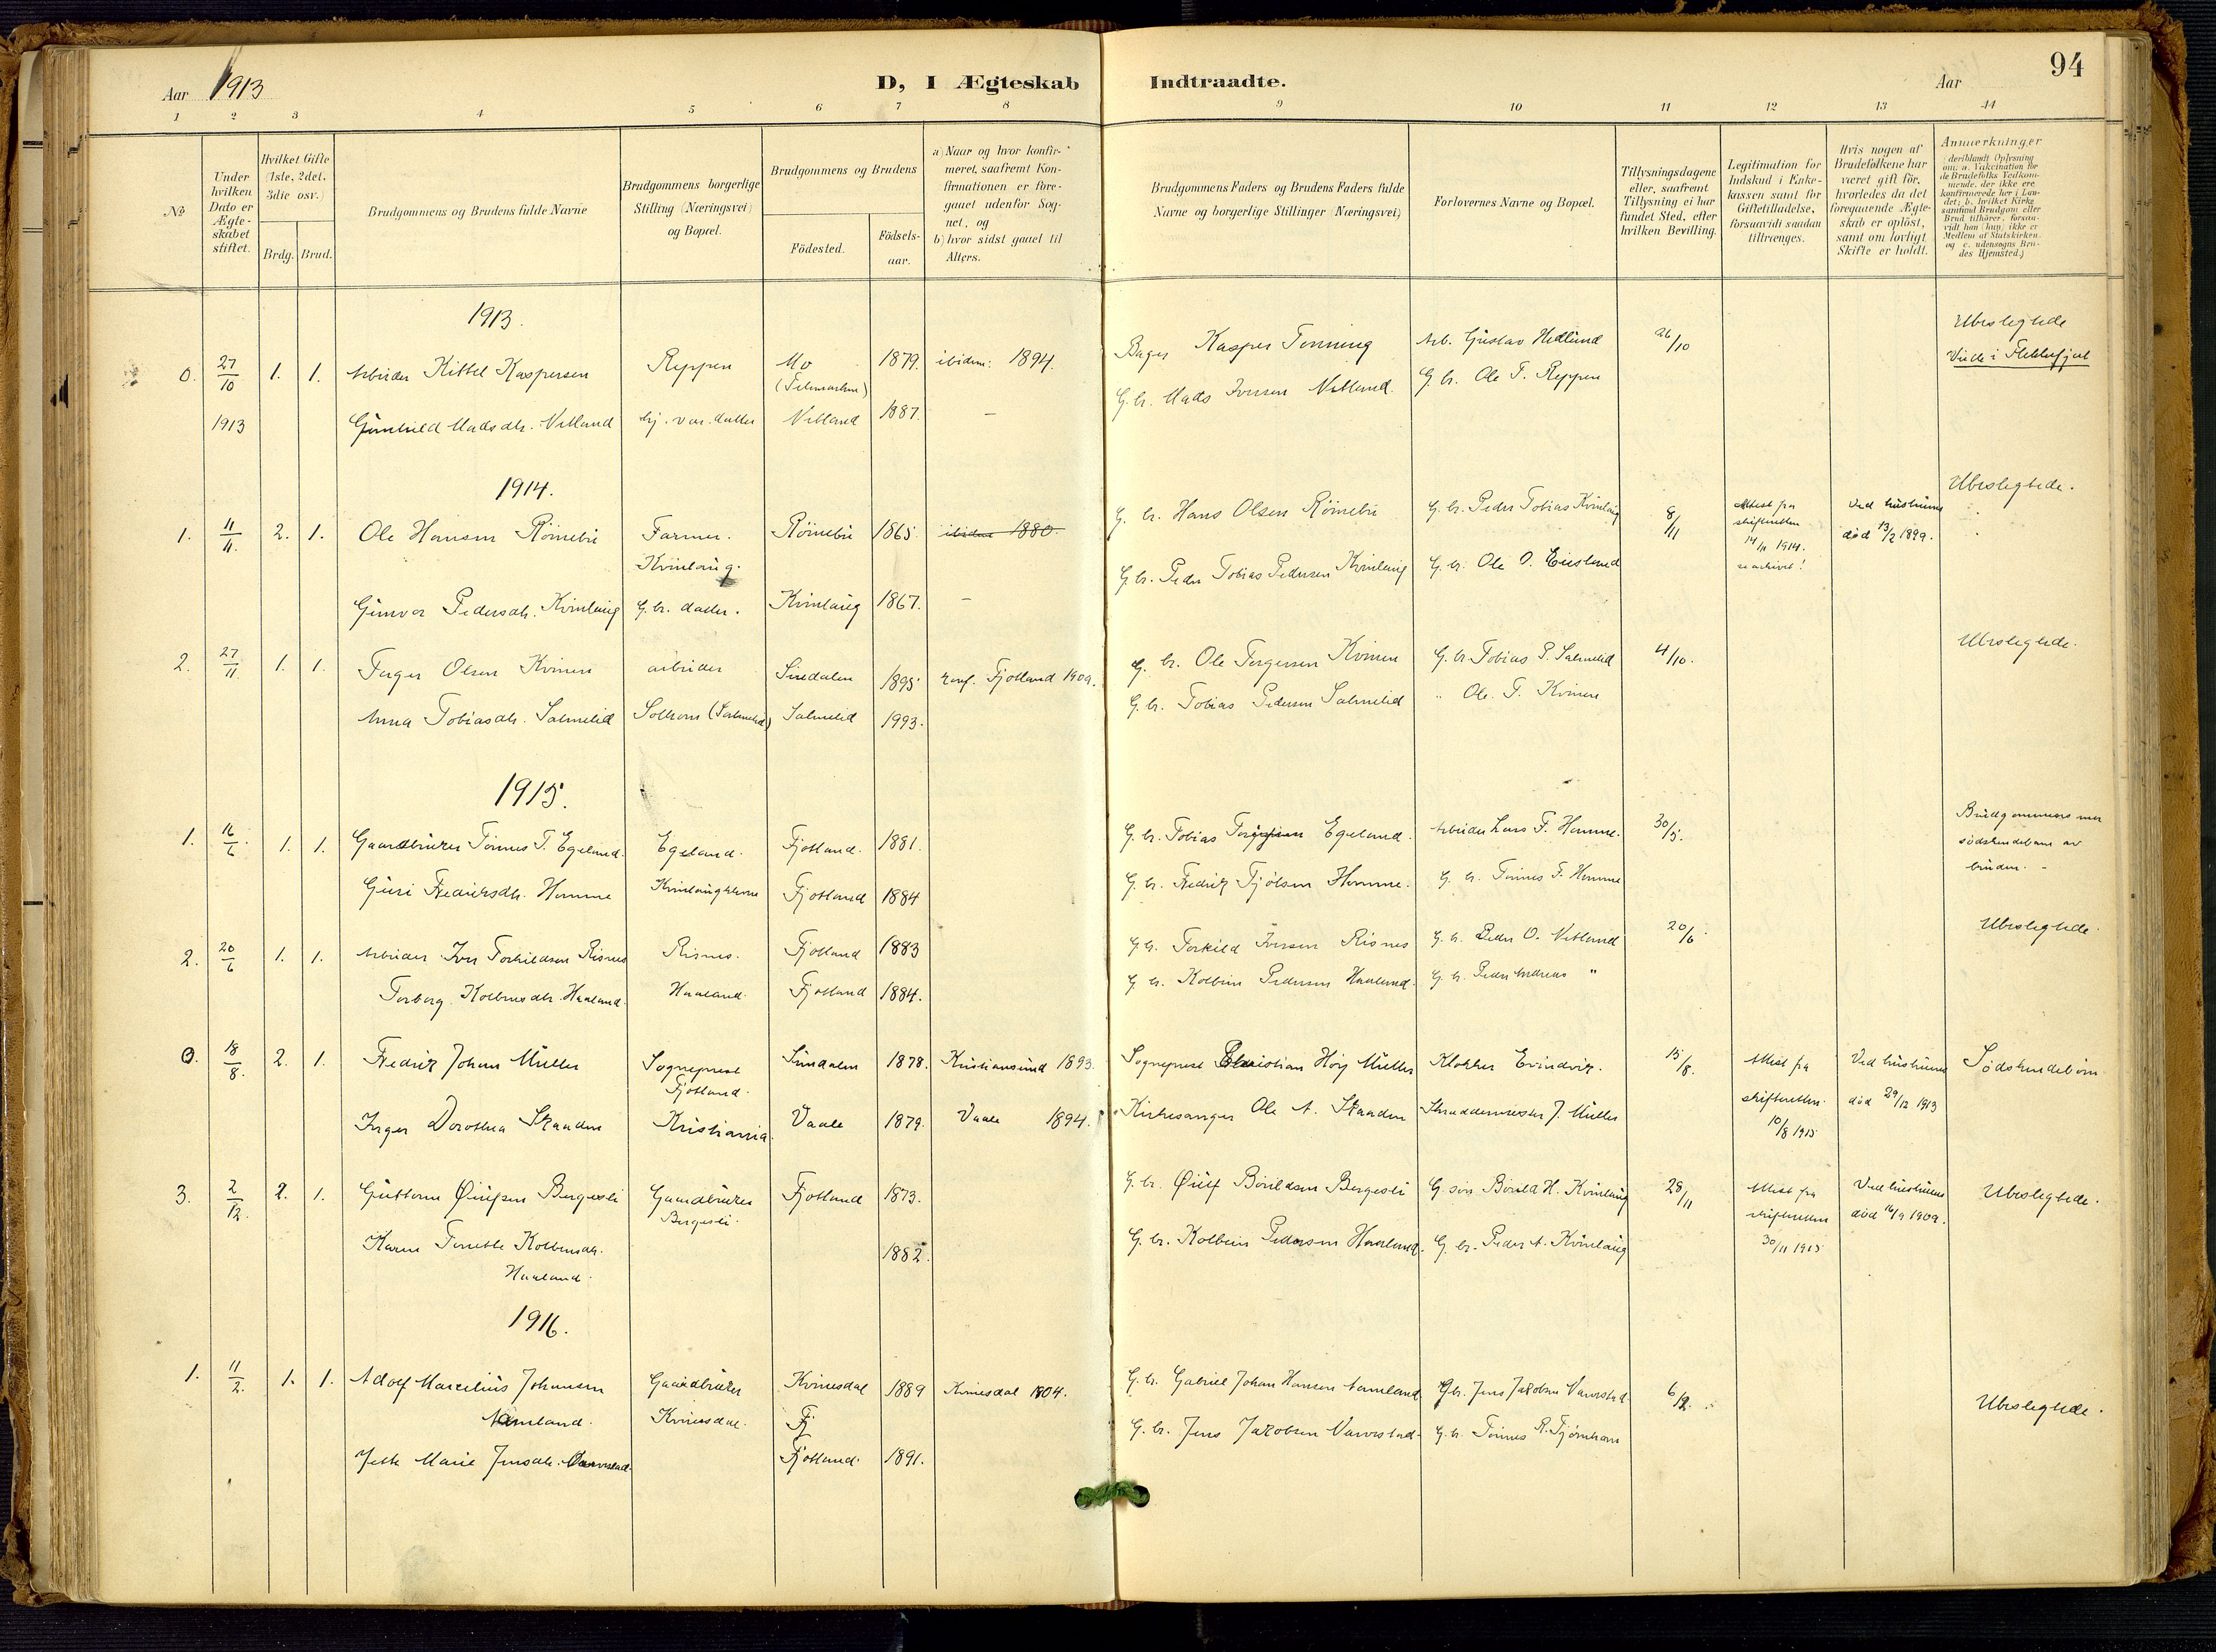 94
Aar 1913 D, I Ægteskab Indtraadte. Aar
1 2 3 4 5 6 7 8 9 10 11 12 13 14
No
Under hvilken Dato er Ægteskabet stiftet.
Hvilket Gifte (1ste, 2det, 3die osv.)
Brdg. Brud.
Brudgommens og Brudens fulde Navne
Brudgommens borgerlige Stilling (Næringsvei) og Bopæl.
Brudgommens og Brudens
Födested. Födselsaar.
a) Naar og hvor konfirmeret, saafremt Konfirmationen er foregaaet udenfor Sognet, og
b) hvor sidst gaaet til Alters.
Brudgommens Faders og Brudens Faders fulde Navne og borgerlige Stillinger (Næringsvei)
Forlovernes Navne og Bopæl.
Tillysningsdagene eller, saafremt Tillysning ei har fundet Sted, efter hvilken Bevilling.
Legitimation for Indskud i Enkekassen samt for Giftetilladelse, forsaavidt saadan tiltrænges.
Hvis nogen af Brudefolkene har været gift för, hvorledes da det foregaaende Ægteskab er oplöst, samt om lovligt Skifte er holdt.
Anmærkninger
(deriblandt Oplysning om: a. Vakcination for de Brudefolks Vedkommende, der ikke ere konfirmerede her i Landet; b. hvilket Kirkesamfund Brudgom eller Brud tilhörer, forsaavidt han (hun) ikke er Medlem af Statskirken og c. udensogns Brudes Hjemsted.)
1913.
0. 27/10 1. 1. Arbeider Kittel Kaspersen Reppen Mo (Telemarken) 1879. ibidem: 1894. Bager Kasper Tonning Arb. Gustav Hedlund 26/10 Ubeslegtede
Viede i Flekkefjord
1913 Gunhild Madsdtr. Netland Netland 1887. — G.br. Mads Iversen Netland. G.br. Ole T. Reppen
1914.
1. 11/11. 2. 1. Ole Hansen Röinebu Farmer. Röinebu 1865. ibidem 1880. G.br. Hans Olsen Röinebu G.br. Peder Tobias Kvinlaug 8/11 Attest fra skifteretten 14/11 1914. se arkivet! Ved hustrues död 13/2 1899. Ubeslegtede.
Kvinlaug.
Gunvor Pedersdtr. Kvinlaug G.br. datter. Kvinlaug 1867. — G.br. Peder Tobias Pedersen Kvinlaug G.br. Ole O. Eiesland
2. 27/11. 1. 1. Torger Olsen Kvinen arbeider Sirdalen 1895 konf. Fjotland 1909. G.br. Ole Torgersen Kvinen G.br. Tobias P. Salmelid 4/10. Ubeslegtede.
Anna Tobiasdtr. Salmelid Solhom (Salmelid) Salmelid 1993. G.br. Tobias Pedersen Salmelid " Ole T. Kvinen
1915.
1. 16/6. 1. 1. Gaardbruker Tönnes T. Egeland. Egeland. Fjotland. 1881. G.br. Tobias Egeland. Arbeider Lars F. Homme. 30/5. Brudgommens mor södskendebarn av bruden. -
Guri Fredriksdtr. Homme Fjotland 1884 G.br. Fredrik Tjölsen Homme. G.br. Tönnes F. Homme
2. 20/6 1. 1. Arbeider Iver Torkildsen Risnes Risnes. Fjotland 1883 G.br. Torkild Iversen Risnes G.br. Peder O. Netland 20/6. Ubeslegtede.
Torborg Kolbensdtr. Haaland. Haaland. Fjotland 1884. G.br. Kolben Pedersen Haaland. G.br. Peder Andreas "
0. 18/8. 2. 1. Fredrik Johan Müller Sogneprest Fjotland. Sirdalen 1878. Kristiansund 1893. Sogneprest Christian Höy Müller Klokker Evindvik. 15/8. Attest fra skifteretten. 10/8 1915 Ved hustrues död 29/12 1913 Södskendebörn
Inger Dorothea Skaaden Kristiania. Vaale 1879. Vaale 1894. Kirkesanger Ole A. Skaaden Skreddermester J. Müller
3. 2/12. 2. 1. Guttorm Öiufsen Bergesli Gaardbruker Bergesli. Fjotland 1873. G.br. Öiuf Börildsen Bergesli G. sön Borild H. Kvinlaug 28/11 Attest fra skifteretten 30/11 1915 Ved hustrues död 16/9 1909. Ubeslegtede.
Karen Tenette Kolbensdtr. Haaland. 1882. G.br. Kolben Pedersen Haaland. G.br. Peder A. Kvinlaug
1916.
1. 11/2. 1. 1. Adolf Marcelius Johansen Aamland. Gaardbruker Kvinesdal. Kvinesdal 1889 Kvinesdal 1904. G.br. Gabriel Johan Hansen Aamland G.br. Jens Jakobsen Vanvstad. 6/2. Ubeslegtede.
Fj
Marie Jensdtr. Fjotland. 1891. G.br. Jens Jakobsen G.br. Tönnes R. Fjömham